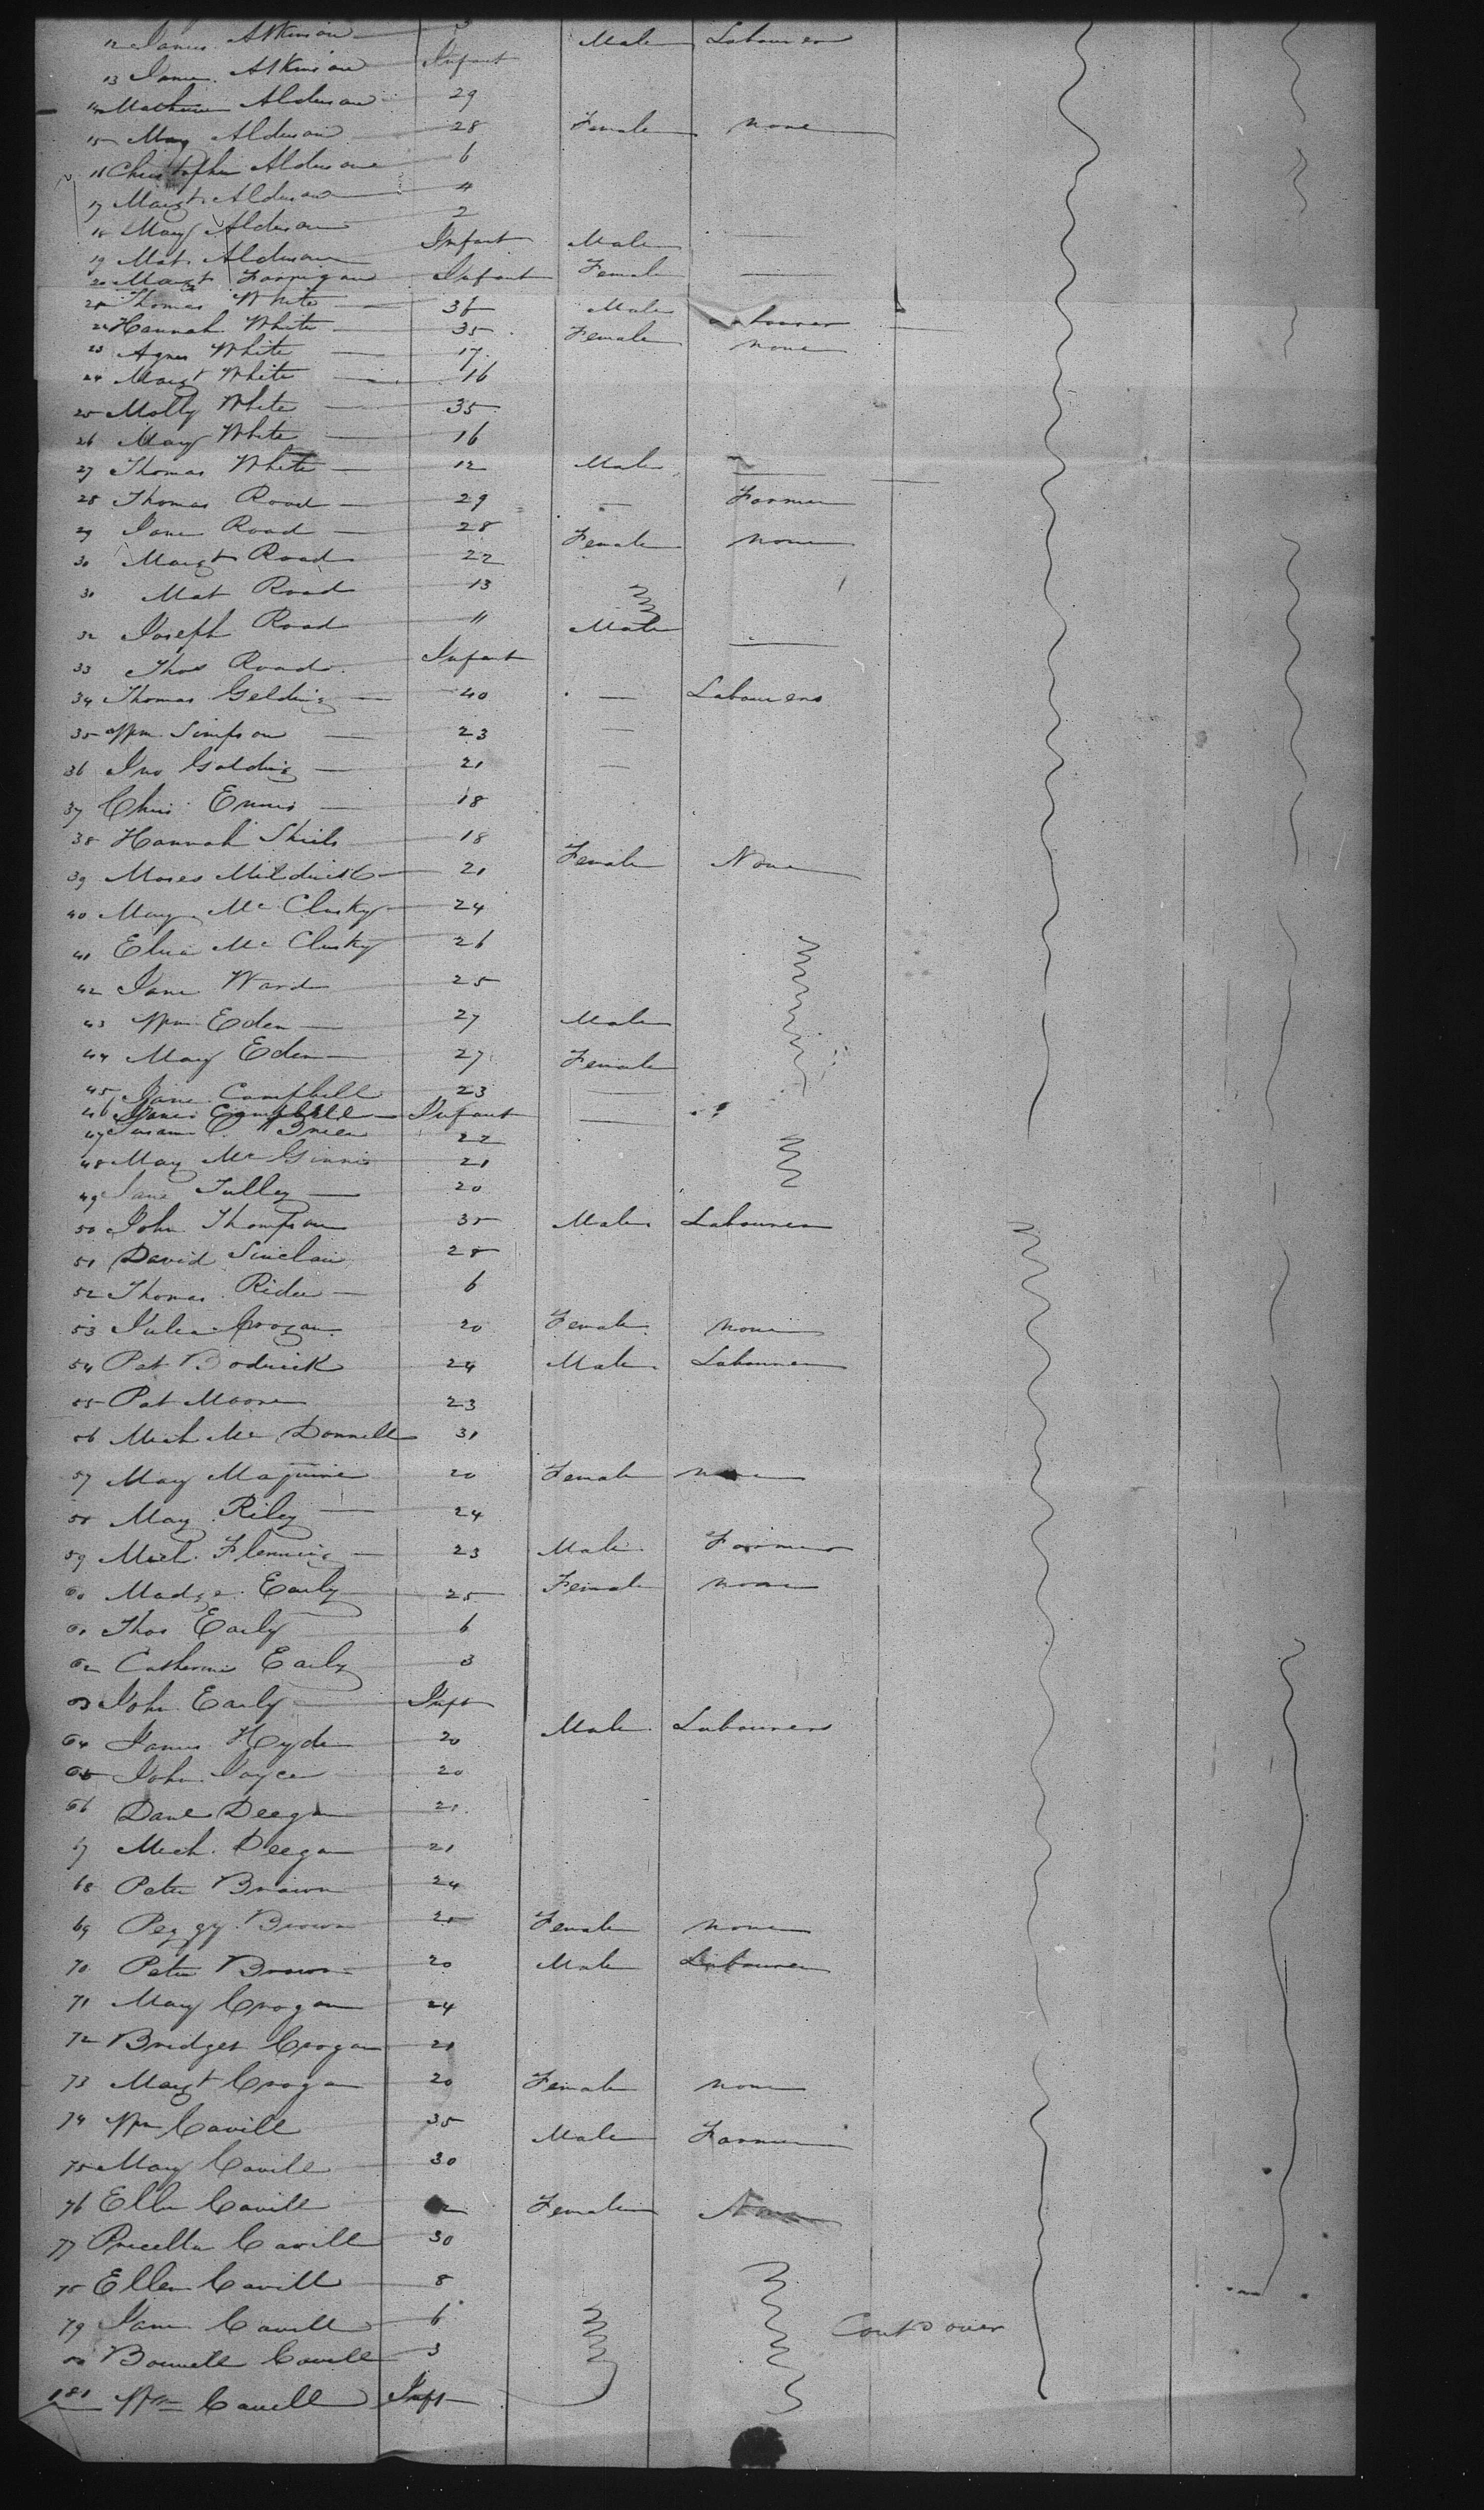 12 James Atkinson 3 Male Labourer
13 Jane Atkinson Infant
14 Mathew Alderson 29
15 Mary Alderson 28 Female none
16 Christopher Alderson 6
17 Margt Alderson 4
18 Mary Alderson 2
19 Mat. Alderson Infant Male
20 Margt Infant Female
21 Thomas White 36 Male Labourer
22 Hannah White 35 Female none
23 Agnes White 17
24 Margt White 16
25 Molly White 35
26 Mary White 16
27 Thomas White 12 Male
28 Thomas Road 29 — Farmer
29 Jane Road 28 Female none
30 Margt Road 22
31 Mat Road 13
32 Joseph Road 11 Male
33 Thos Road Infant
34 Thomas Gelding 40 — Labourers
35 Wm Simpson 23 —
36 Jno Golding 21 —
37 Chris Ennis 18
38 Hannah Shiels 18
39 Moses 21 Female None
40 Mary McClusky 24
41 Eliza McClusky 26
42 Jane Ward 25
43 Wm Eden 27 Male
44 Mary Eden 27 Female
45 Jane Campbell 23
46 James Campbell Infant
47 Susan O'Brien 22
48 Mary McGinnis 21
49 Jane Tulley 20
50 John Thompson 35 Male Labourer
51 David Sinclair 28
52 Thomas Rider 6
53 Julia Crogan 20 Female none
54 Pat Bodrick 24 Male Labourer
55 Pat Moore 23
56 Mich McDonnell 31
57 May Maguire 20 Female none
58 May Riley 24
59 Mich. Flemming 23 Male Farmer
60 Madge Early 25 Female none
61 Thos Early 6
62 Catherine Early 3
63 John Early Inft
64 James Hyde 20 Male Labourers
65 John Joyce 20
66 Danl Deegan 21
67 Mich. Deegan 21
68 Peter Brown 24
69 Peggy Brown Female none
70 Peter Brown 20 Male Labourer
71 Mary Crogan 24
72 Bridget Crogan 21
73 Margt Crogan 20 Female none
74 Wm Cavill 35 Male Farmer
75 Mary Cavill 30
76 Ellen Cavill Female None
77 Pricella Cavill 30
78 Ellen Cavill 8
79 Jane Cavill 6 Contd over
80 Cavill 3
181 Wm Cavill Inft